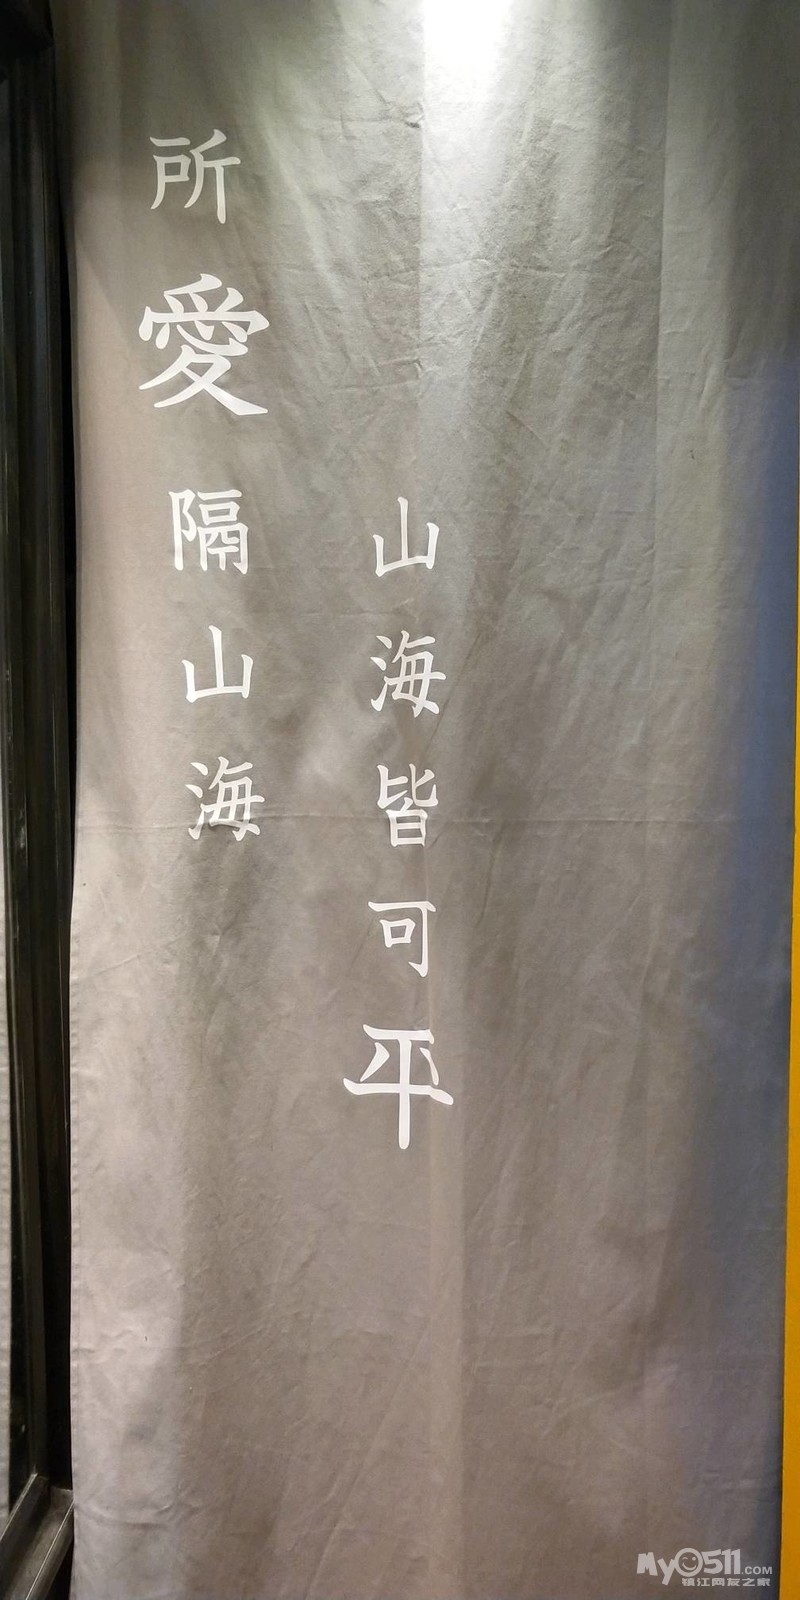 所愛隔山海
山海皆可平
MyO511.COM
镇江网友之家